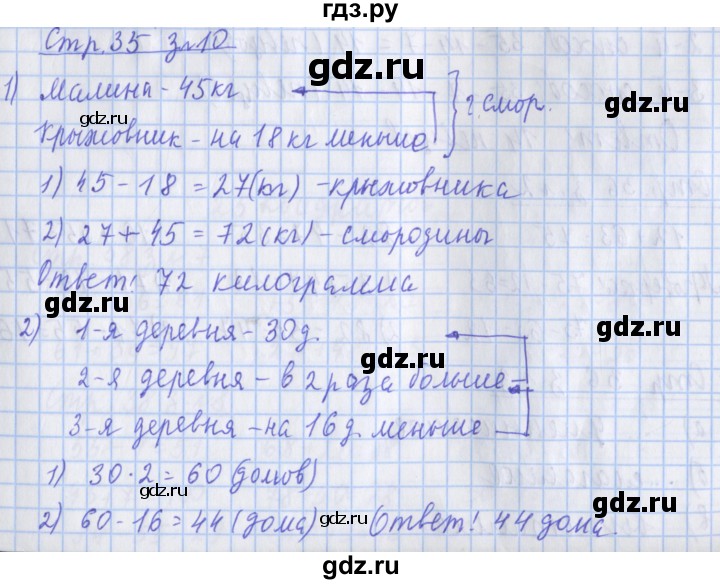 гдз.ру
Стр. 35 з. 10
gdz.ru
1) Малина - 45кг
? смор. gdz.ru
Крыжовник - на 18 кг меньше
1) 45 - 18 = 27(кг) - крыжовника
gdz.ru
2) 27 + 45 = 72(кг) - смородины
gdz.ru
Ответ! 72 килограмма
gdz.ru
2) 1-я деревня - 30д.
gdz.ru
gdz.ru
2-я деревня - в 2 раза больше
3-я деревня - на 16 д. меньше
1) 30 · 2 = 60 (домов)
gdz.ru
gdz.ru
2) 60 - 16 = 44 (дома) gdz.ru Ответ! 44 дома.
gdz.ru